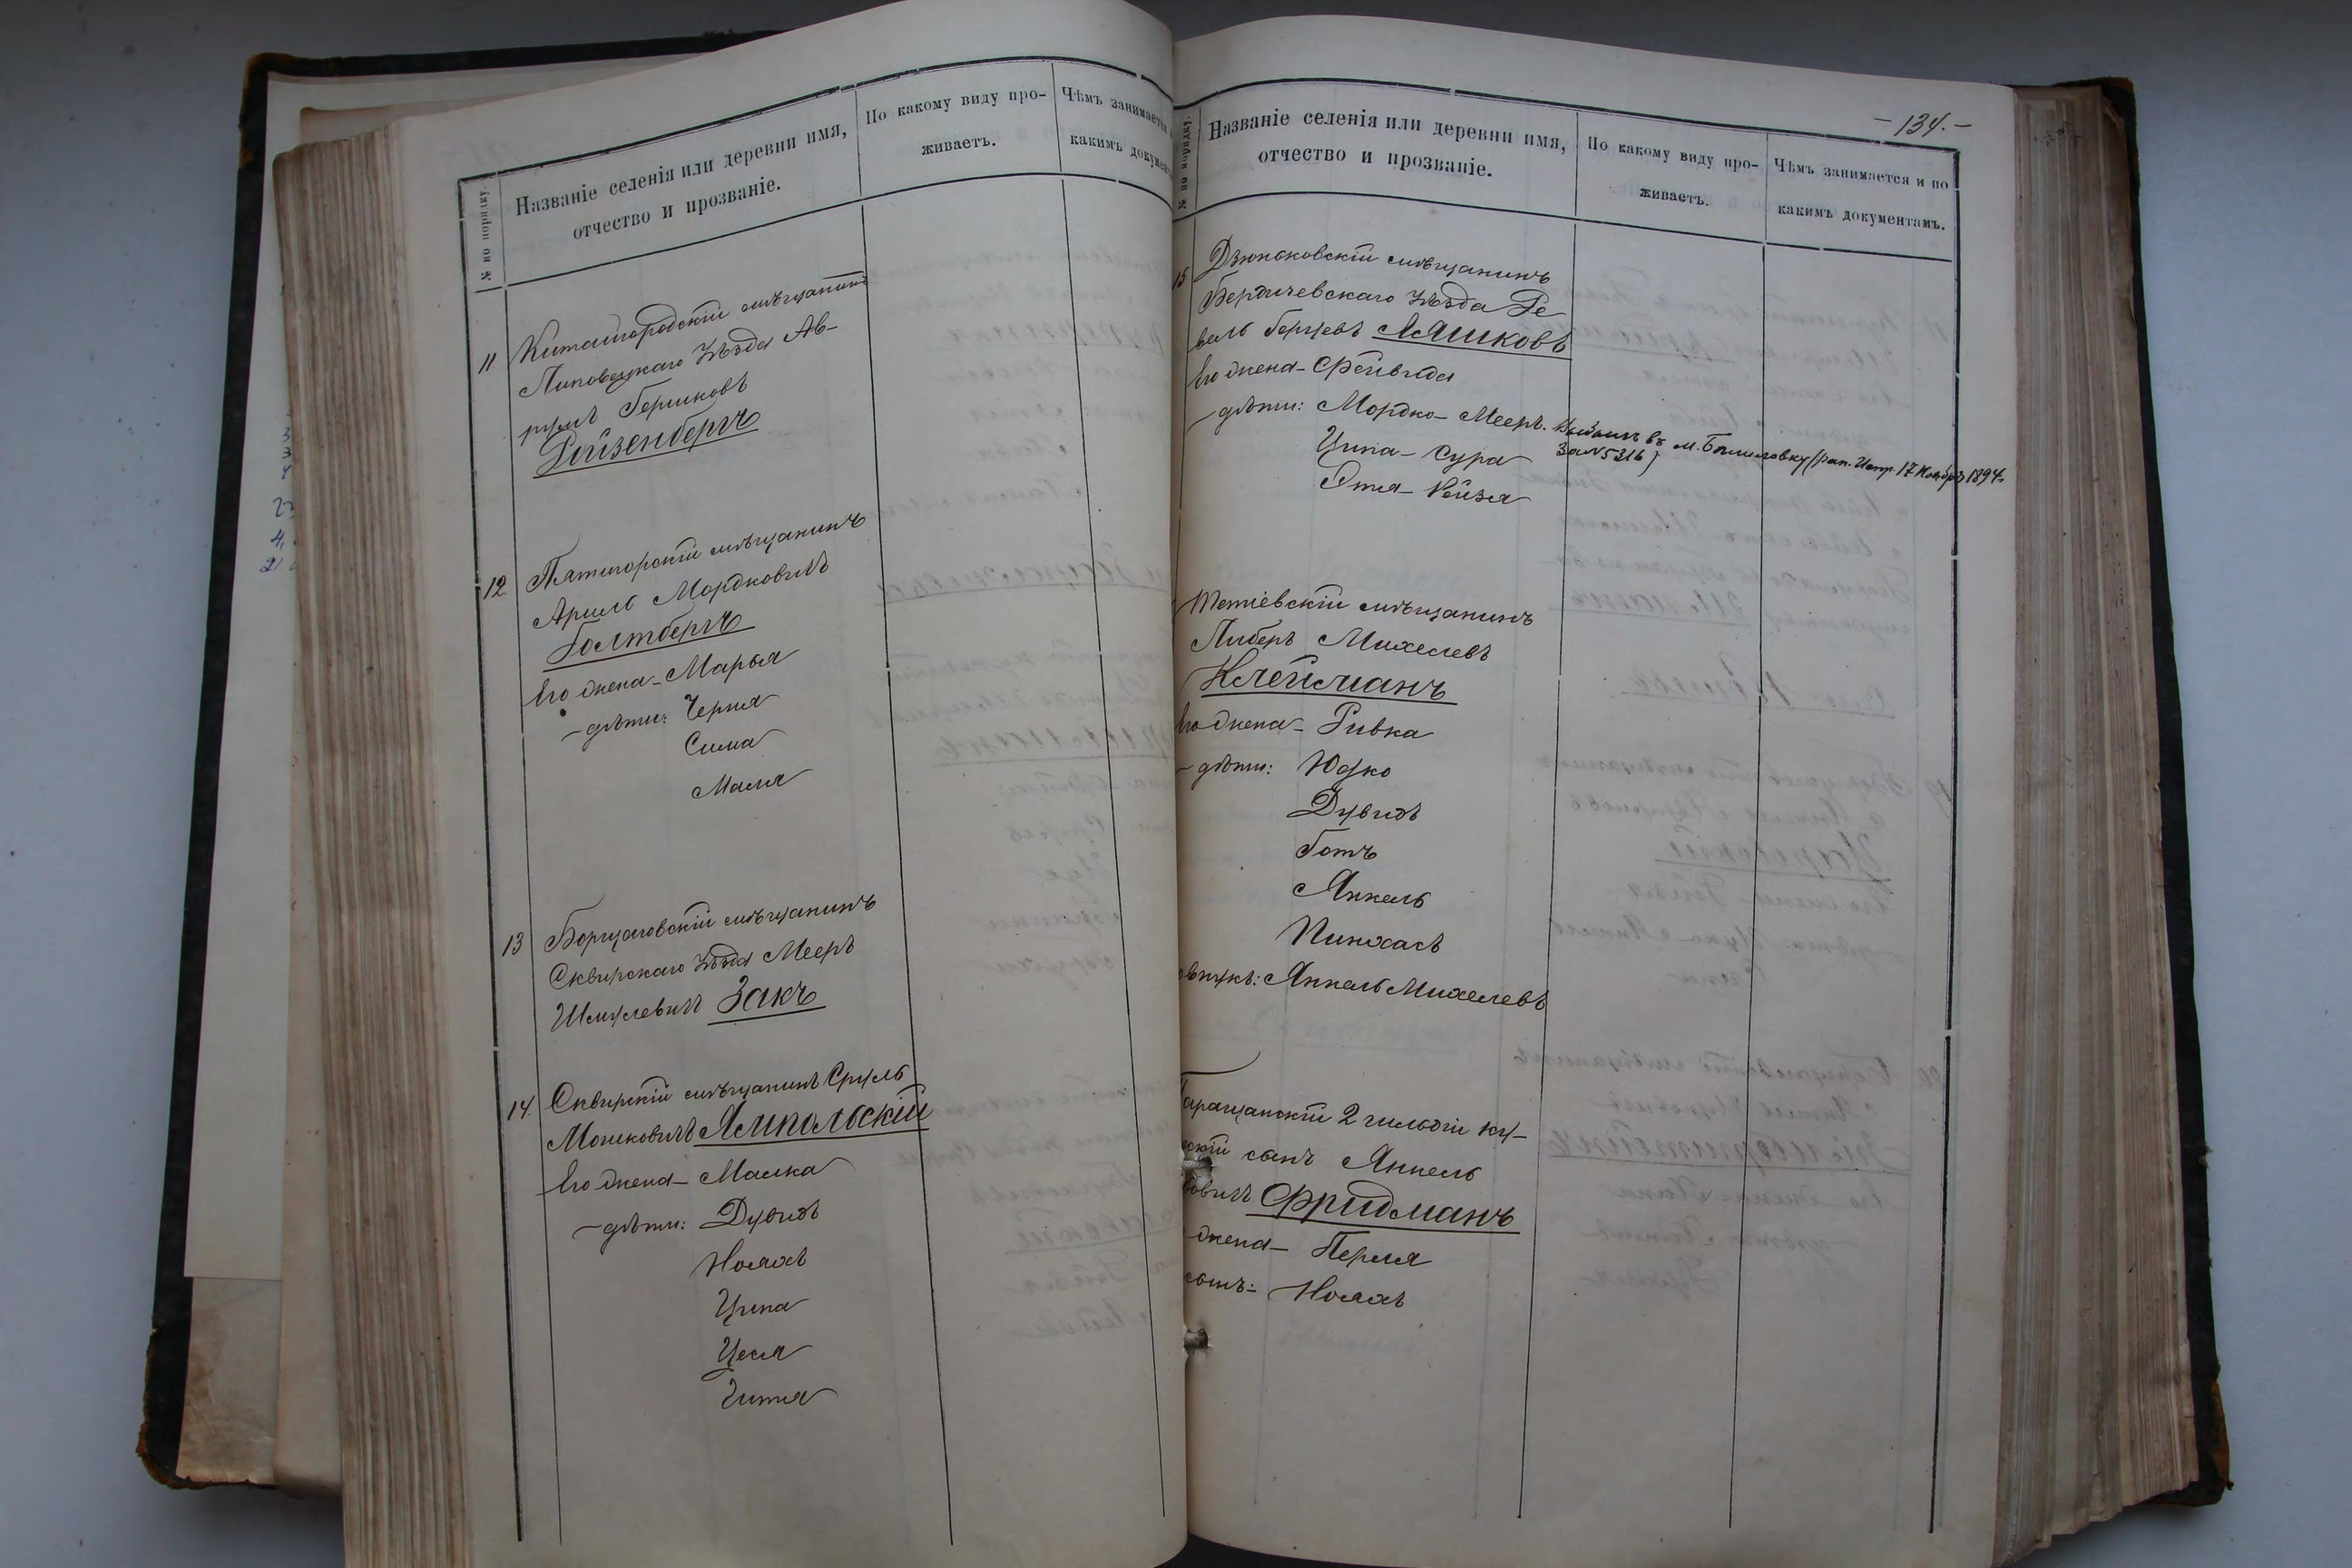 № по порядку
Названіе селенія или деревни имя,
отчество и прозваніе.
По какому виду про-
живаетъ.
Чѣмъ занимается
какимъ докумен
11 Китайгородскій мѣщанинъ
Липовецкаго Уѣзда Ав-
румъ Гершковъ
Ройзенбергъ
12 Пятигорскій мѣщанинъ
Ариль Мордковичъ
Голтбергъ
Его жена - Марья
- дѣти: Черня
Сима
Маля
13 Борщаговскій мѣщанинъ
Сквирскаго Уѣзда Мееръ
Шмулевичъ Закъ
14 Сквирскій мѣщанинъ Сруль
Мошковичъ Ямпольскій
Его жена - Малка
- дѣти: Дувидъ
Нояхъ
Ципа
Цеся
Гитля
- 134. -
№ по порядку.
Названіе селенія или деревни имя,
отчество и прозваніе.
По какому виду про-
живаетъ.
Чѣмъ занимается и по
какимъ документамъ.
15 Дзюньковскій мѣщанинъ
Бердичевскаго Уѣзда Ге
валь Берковъ Ляшковъ
Его жена - Фейвида
- дѣти: Мордко - Мееръ. въ м. Балиловку (рап. Испр. 17 Ноября 1894
Ципа - Сура За № 5216)
Этля - Рейзя
Тетіевскій мѣщанинъ
Либеръ Михелевъ
Клейманъ
Его жена - Ривка
- дѣти: Юдко
Дувидъ
Готъ
Янкель
Пинхасъ
внукъ: Янкель Михелевъ
Таращанскій 2 гильдіи ку-
скій сынъ Янкель
овичъ Фридманъ
жена - Перля
сынъ: Нояхъ